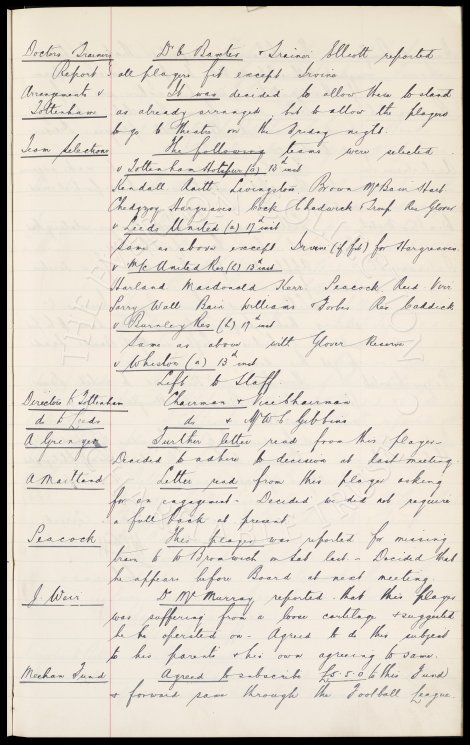 Doctors Trainers Dr C Baxter & Trainer Elliott reported
Report all players fit except Irvine
Arrangements v It was decided to allow these to stand
Tottenham as already arranged but to allow the players
to go to theatre on the Friday night.
Team Selections The following teams were selected
v Tottenham Hotspur (a) 13th inst
Kendall Raitt Livingstone Brown McBain Hart
Chedgzoy Hargreaves Cock Chadwick & Troup Res Glover
v Leeds United (a) 17th inst
Same as above except Irvine (if fit) for Hargreaves
v M/c United Res (h) 13th inst
Harland Macdonald Kerr Peacock Reid Virr
Parry Wall Bain Williams & Forbes Res Caddick
v Burnley Res (h) 17th inst
Same as above with Glover Reserve
v Whiston (a) 13th inst
Left to Staff.
Directors to Tottenham Chairman & Vice Chairman
do to Leeds do & Mr W C Gibbins
A Grenyer Further letter read from this player
Decided to adhere to decision at last meeting.
A Maitland Letter read from this player asking
for an engagement - Decided we did not require
a full back at present
Peacock This player was reported for missing
train to W Bromwich on Sat last - Decided that
he appears before Board at next meeting.
J. Weir Dr McMurray reported that this player
was suffering from a loose cartilage & suggested
he be operated on - Agreed to do this subject
to his parents & his own agreeing to same.
Meehan Fund Agreed to subscribe £5.5.0 to this Fund
& forward same through the Football League.